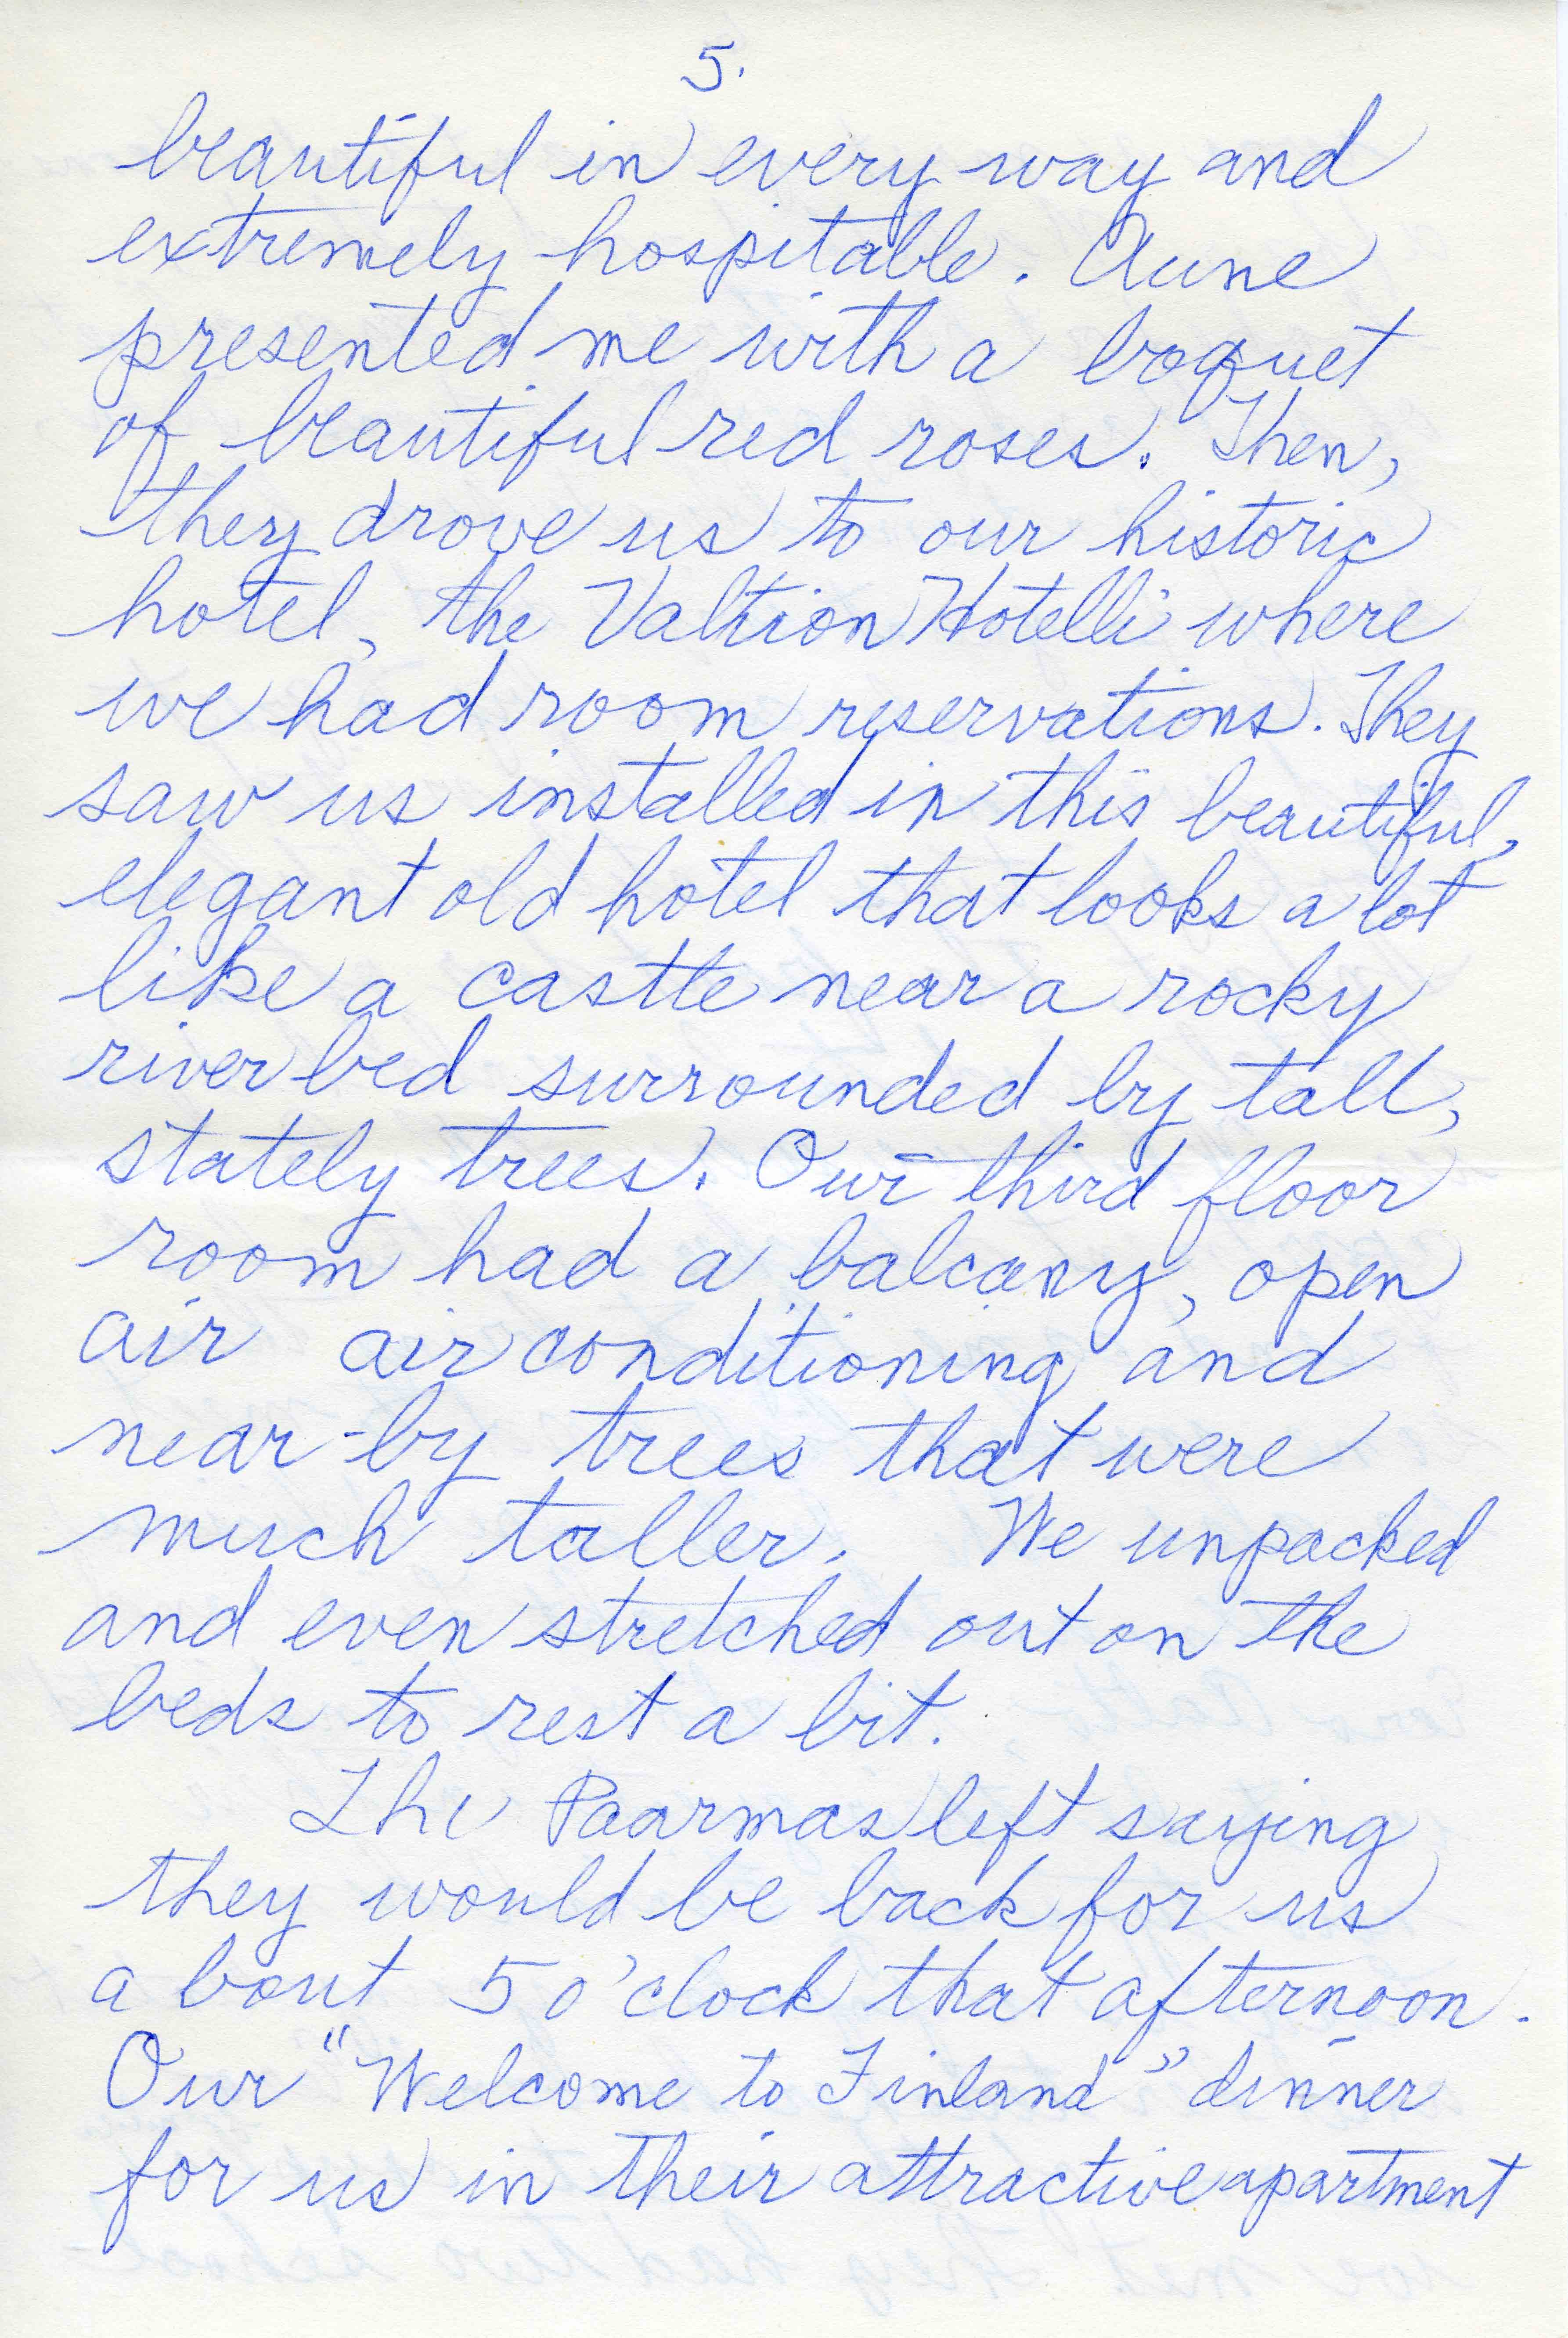 5.
beautiful in every way and
extremely hospitable. Aune
presented me with a boquet
of beautiful red roses. Then,
they drove us to our historic
hotel, the Valtion Hotelli where
we had room reservations. They
saw us installed in this beautiful,
elegant old hotel that looks a lot
like a castle near a rocky
river bed surrounded by tall,
stately trees. Our third floor
room had a balcany, open
air air conditioning and
near-by trees that were
much taller. We unpacked
and even stretched out on the
beds to rest a bit.
The Paarmas left saying
they would be back for us
a bout 5 o'clock that afternoon.
Our "Welcome to Finland" dinner
for us in their attractive apartment